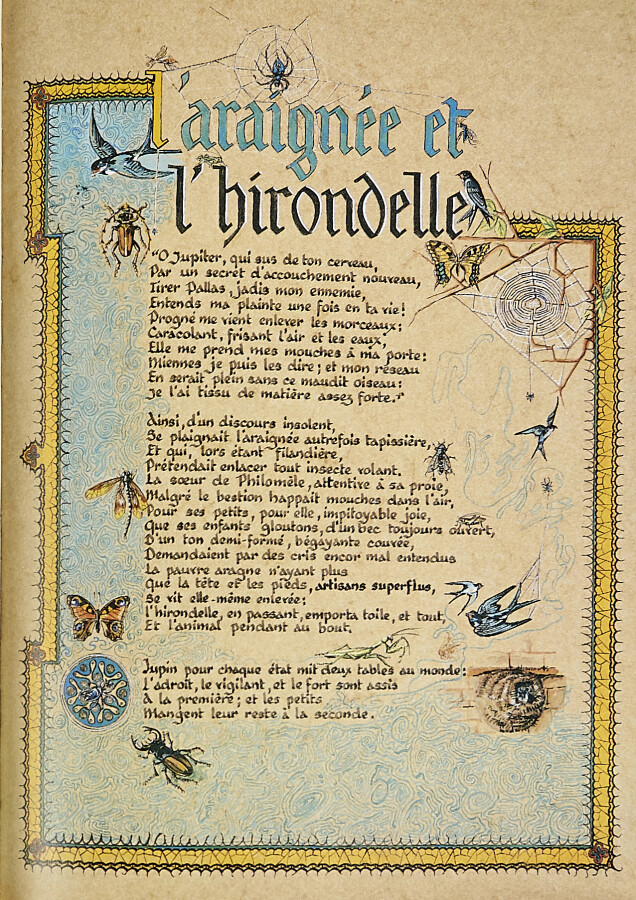 l'araignée et
l'hirondelle
"O Jupiter, qui sus de ton cerveau,
Par un secret d'accouchement nouveau,
Tirer Pallas, jadis mon ennemie,
Entends ma plainte une fois en ta vie!
Progné me vient enlever les morceaux;
Caracolant, frisant l'air et les eaux,
Elle me prend mes mouches à ma porte:
Miennes je puis les dire; et mon réseau
En serait plein sans ce maudit oiseau:
Je l'ai tissu de matière assez forte."
Ainsi, d'un discours insolent,
Se plaignait l'araignée autrefois tapissière,
Et qui, lors étant filandière,
Prétendait enlacer tout insecte volant.
La sœur de Philomèle, attentive à sa proie,
Malgré le bestion happait mouches dans l'air,
Pour ses petits, pour elle, impitoyable joie,
Que ses enfants gloutons, d'un bec toujours ouvert,
D'un ton demi-formé, bégayante couvée,
Demandaient par des cris encor mal entendus
La pauvre aragne n'ayant plus
Que la tête et les pieds, artisans superflus,
Se vit elle-même enlevée:
L'hirondelle, en passant, emporta toile, et tout,
Et l'animal pendant au bout.
Jupin pour chaque état mit deux tables au monde:
L'adroit, le vigilant, et le fort sont assis
à la première; et les petits
Mangent leur reste à la seconde.